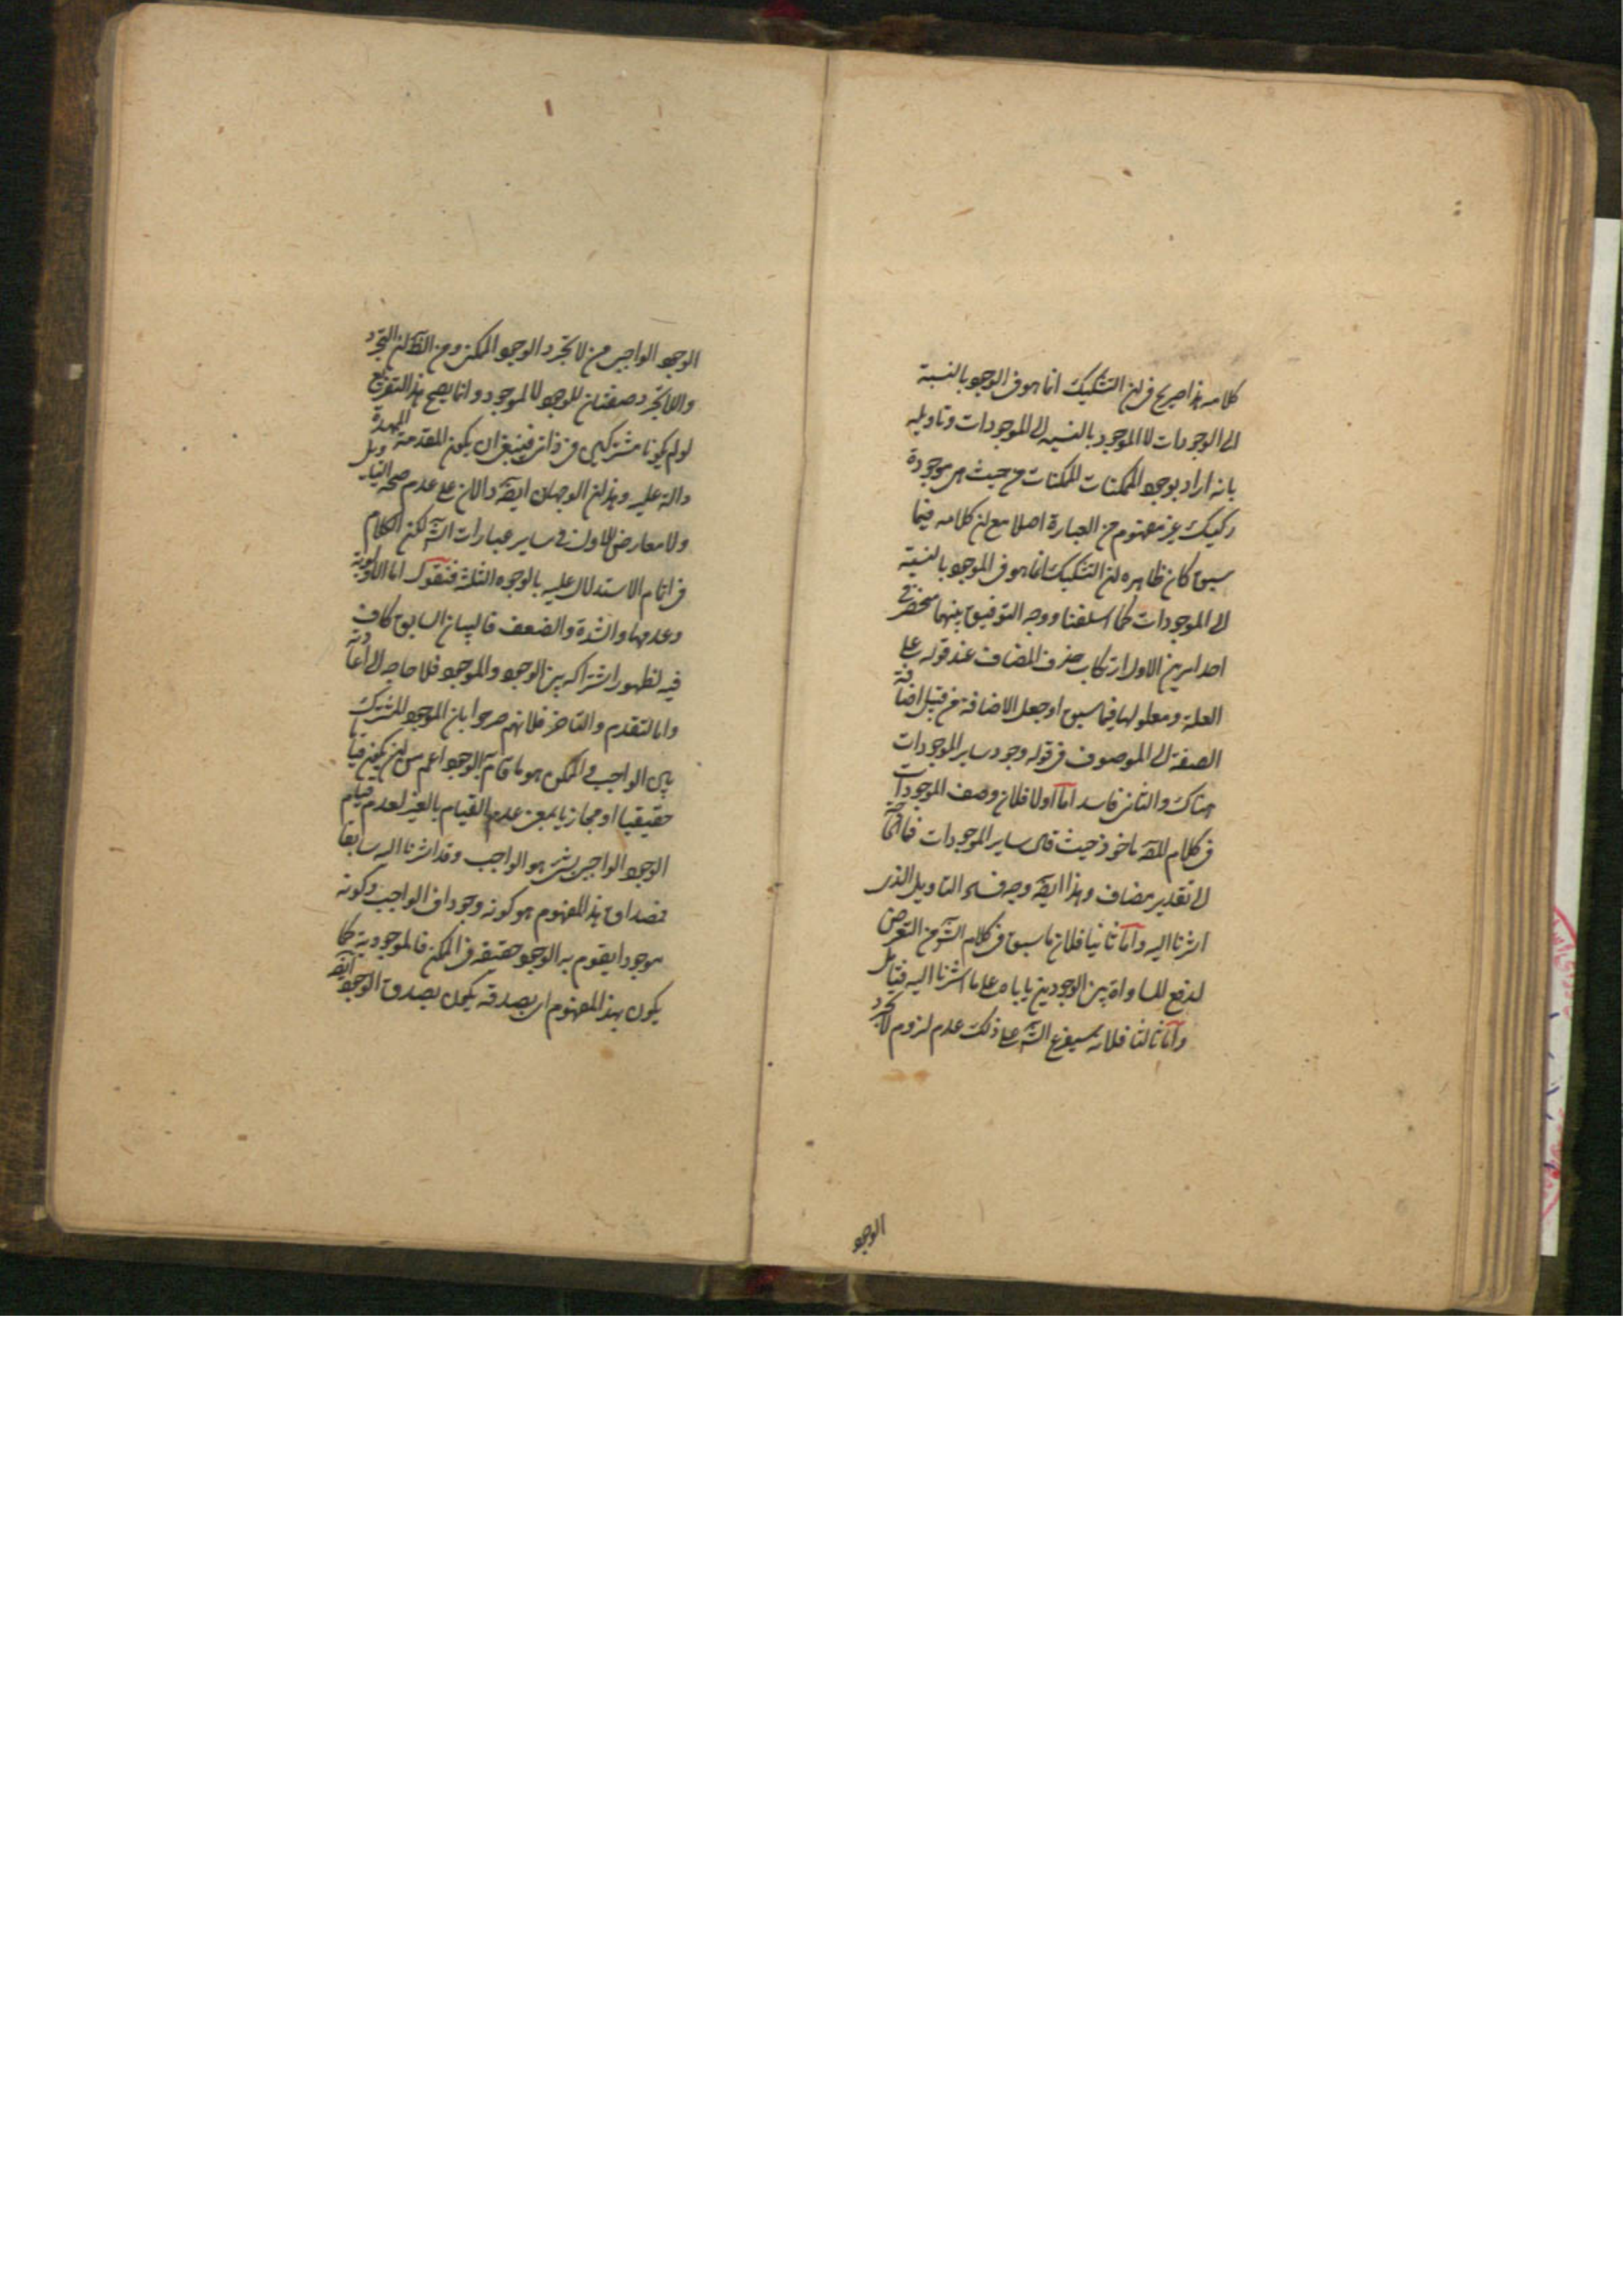 كلامه هذا صريح في ان التشكيك انما هو في الوجود بالنسبة
الى الوجودات لا الموجود بالنسبه الى الموجودات وتاويله
بانه اراد بوجود الممكنات الممكنات من حيث هى موجودة
ركيك غير مفهوم من العبارة اصلا مع ان كلامه فيما
سبق كان ظاهره ان التشكيك انما هو في الموجود بالنسبة
الى الموجودات كما اسلفنا ووجه التوفيق بينهما منحصر في
احد امرين الاول ارتكاب حذف المضاف عند قوله على
العلة ومعلولها فيما سبق او جعل الاضافة من قبيل اضافة
الصفة الى الموصوف في قوله وجود ساير الموجودات
هناك والثاني فاسد اما اولا فلان وصف الموجودات
في كلام المصه ماخوذ حيث قال ساير الموجودات فما الحاجة
الى تقدير مضاف وهذا ايضه وجه فساد التاويل الذي
اشرنا اليه واما ثانيا فلان ما سبق في كلام الشه من التعرض
لدفع المساواة بين الوجودين ياباه على ما اشرنا اليه فتامل
واما ثالثا فلانه سيفرع الشه على ذلك عدم لزوم لا تجرد
الوجود
الوجود الواجبي من لا تجرد الوجود الممكن ومن الظه ان التجرد
واللاتجرد صفتان للوجود لا الموجود وانما يصح هذا التفريع
لو لم يكونا مشتركين في ذاتي فينبغي ان يكون المقدمة الممهدة
دالة عليه وهذان الوجهان ايضه دالان على عدم صحة التاويل
ولا معارض للاول في ساير عبارات الشه لكن الكلام
في اتمام الاستدلال عليه بالوجوه الثلثة فنقول اما الاولوية
وعدمها والشدة والضعف فالبيان السابق كاف
فيه لظهور اشتراكه بين الوجود والموجود فلا حاجه الى اعادته
واما التقدم والتاخر فلانهم صرحوا بان الموجود المشترك
بين الواجب والممكن هو ما قام به الوجود اعم من ان يكون قياما
حقيقيا او مجازيا بمعنى عدم القيام بالغير لعدم قيام
الوجود الواجبي بشيء هو الواجب وقد اشرنا اليه سابقا
فمصداق هذا المفهوم هو كونه وجودا في الواجب وكونه
موجودا يقوم به الوجود حقيقة في الممكن فالموجودية كما
يكون بهذا المفهوم اى بصدقه يكون بصدق الوجود ايضه